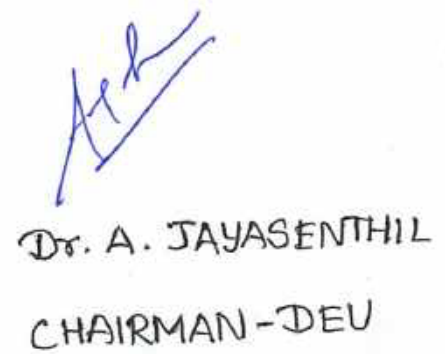 Dr. A. JAYASENTHIL
CHAIRMAN-DEU